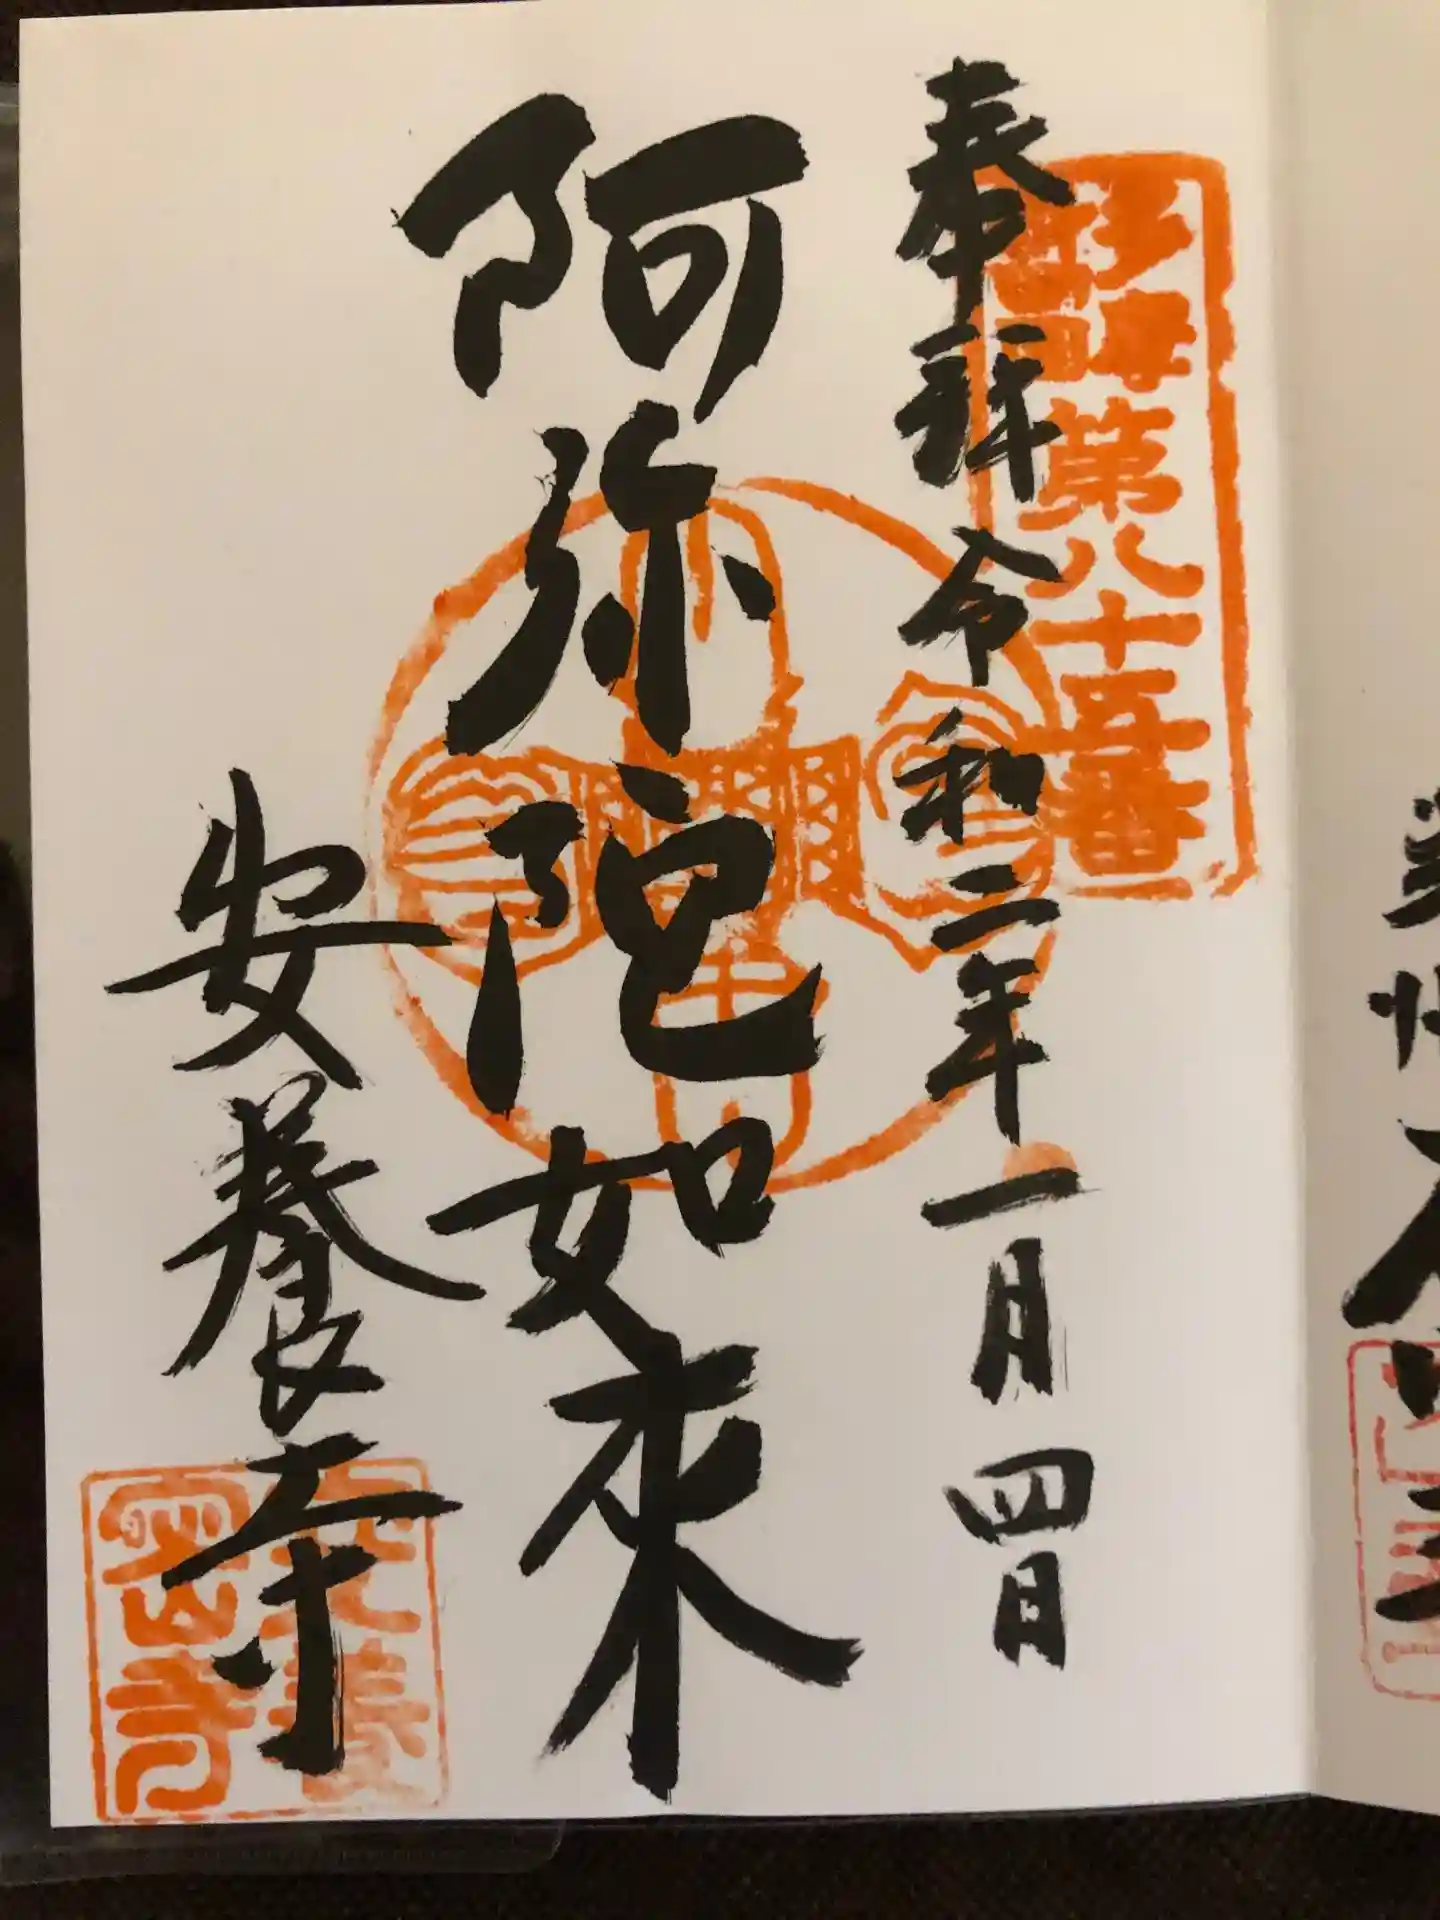 第八十五番
奉拝 令和二年一月四日
阿弥陀如来
安養寺
安養
密寺